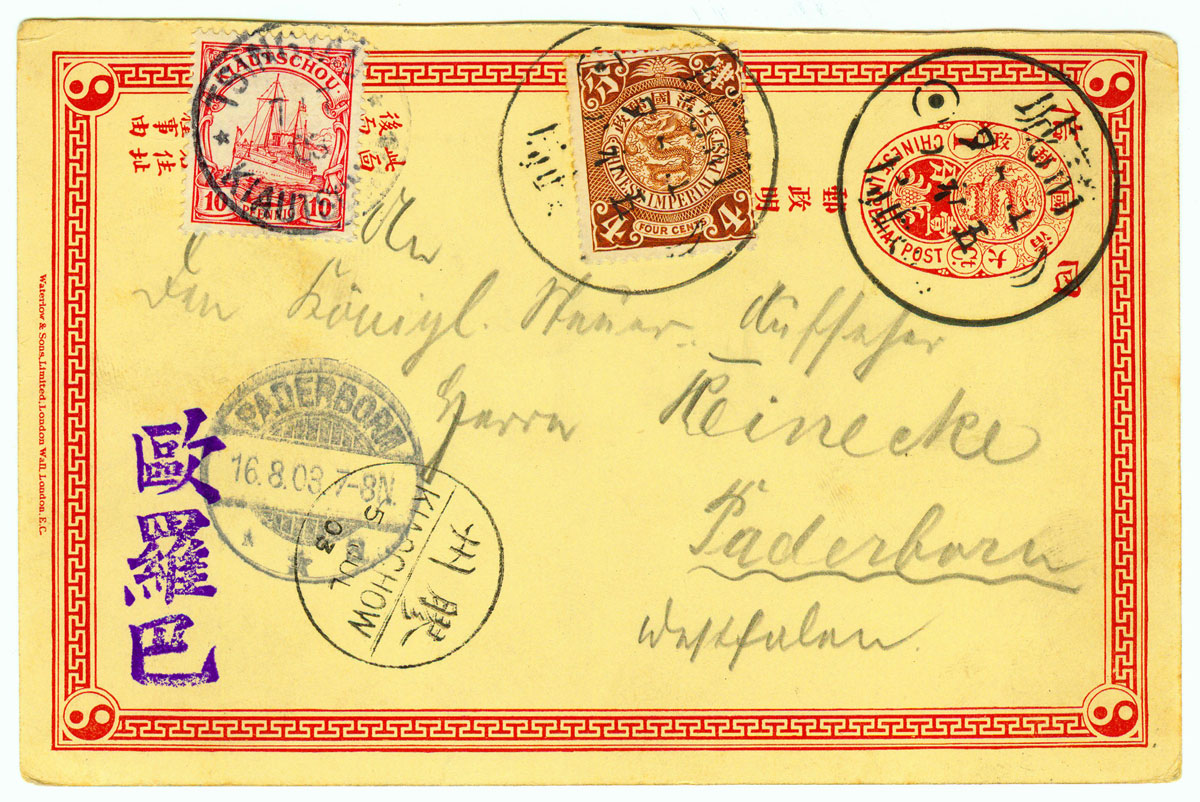 KIAUTSCHOU
10 PFENNIG 10
TSINGTAU
KIAUT
大清國郵政
CHINESE IMPERIAL POST
4 4
FOUR CENTS
大清
CHINESE IMPERIAL POST
1 Ct.
郵政
後此
爲面
由址
An
den Königl. Steuer-Aufseher
Herrn Reinecke
Paderborn
Westfalen.
PADERBORN
16.8.03 7-8N.
州膠
KIAOCHOW
5 JUL
03
歐羅巴
Waterlow & Sons, Limited, London Wall, London, E.C.